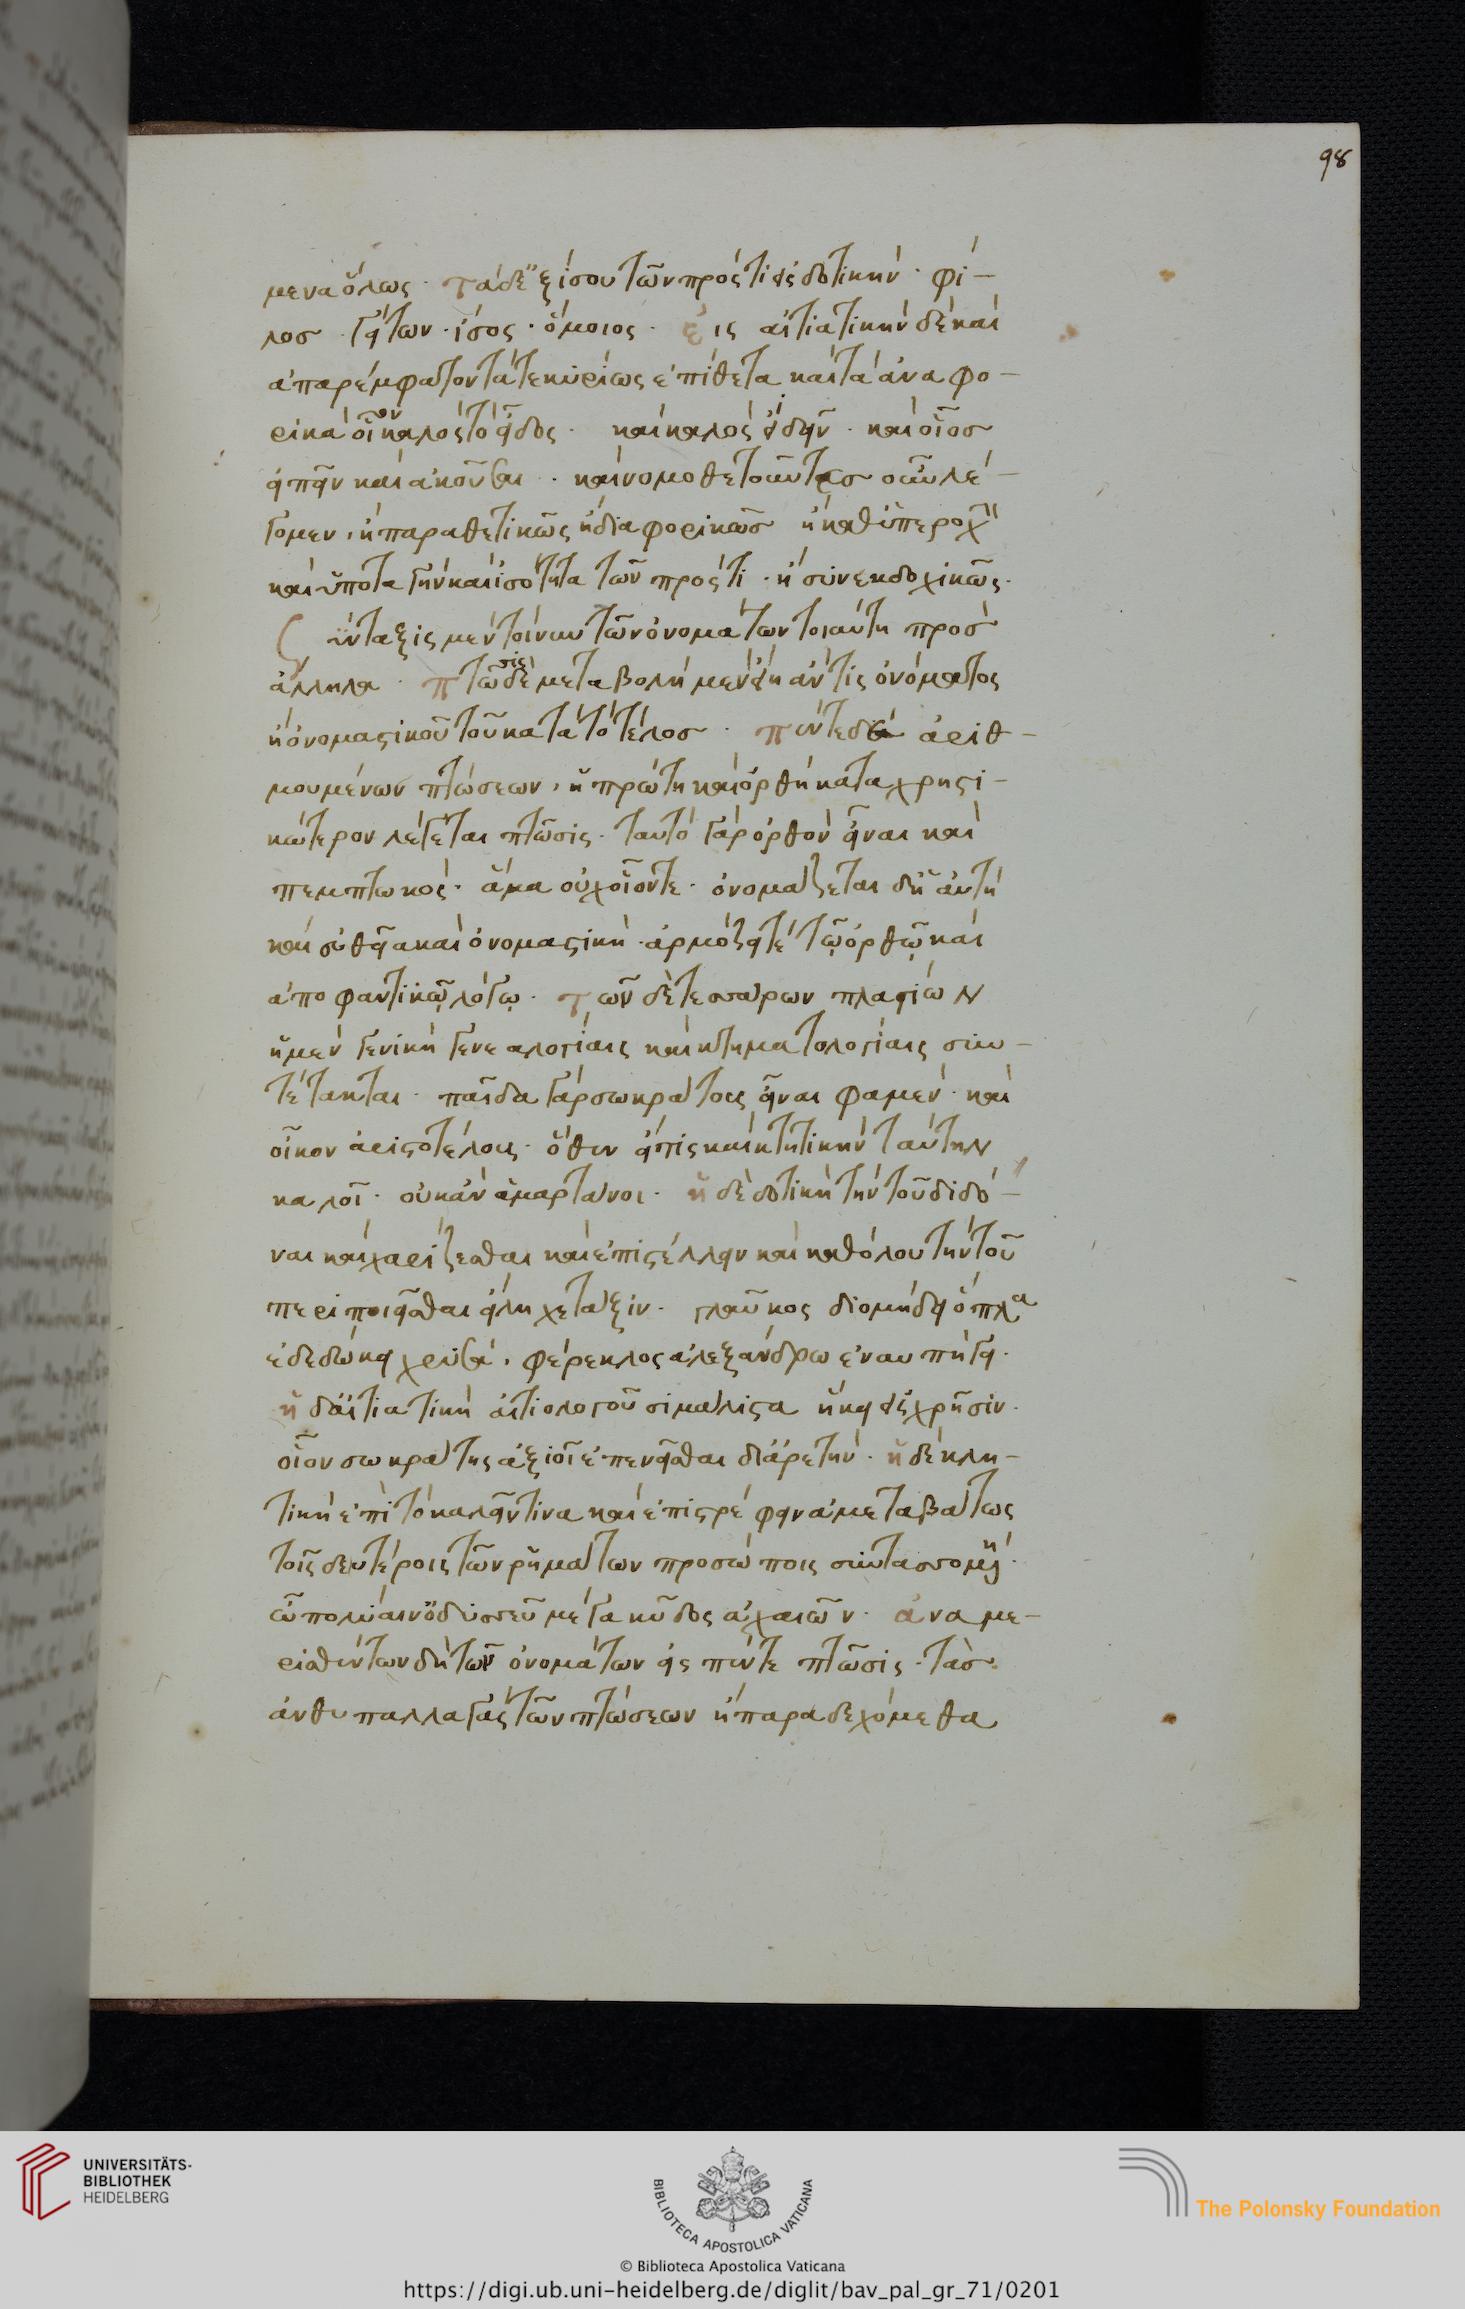 98
μενα ὅλως · τὰ δὲ ἐξ ίσου τῶν πρός τι εἰς δοτικὴν · φί-
λοσ · γείτων · ἴσος · ὅμοιος · εἰς αἰτιατικὴν δὲ καὶ
ἀπαρέμφατον τά τε κυρίως ἐπίθετα καὶ τὰ ἀναφο-
ρικὰ οἷον καλὸς τὸ εἶδος · καὶ καλὸς ἰδεῖν · καὶ οἷοσ
εἰπεῖν καὶ ἀκοῦσαι · καὶ νομοθετοῦντασ οὖν λέ-
γομεν, ἢ παραθετικῶς ἢ διαφορικῶσ ἢ καθ ὑπεροχὴ
καὶ ὑποταγὴν καὶ ἰσότητα τῶν πρός τι · ἢ συνεκδοχικῶς ·
Σύνταξις μὲν τοίνυν τῶν ὀνομάτων τοιαύτη προσ
ἄλληλα · πτῶσις δὲ μεταβολὴ μὲν εἴη ἄν τις ὀνόματος
ἢ ὀνομαστικοῦ τοῦ κατὰ τὸ τέλοσ · πέντε δὲ ἀριθ-
μουμένων πτώσεων, ἡ πρώτη καὶ ὀρθὴ καταχρηστι-
κώτερον λέγεται πτῶσις · ταυτὸ γὰρ ὀρθὸν εἶναι καὶ
πεπτωκὸς · ἅμα οὐχ οἷόν τε · ὀνομάζεται δὴ αὐτὴ
καὶ εὐθεῖα καὶ ὀνομαστικὴ · ἁρμόζει τέ τῷ ὀρθῷ καὶ
ἀποφαντικῷ λόγῳ · τῶν δὲ τεσσάρων πλαγίων
ἡ μὲν γενικὴ γενεαλογίαις καὶ κτηματολογίαις συν-
τέτακται · παῖδα γὰρ σωκράτους εἶναι φαμὲν · καὶ
οἶκον ἀριστοτέλους · ὅθεν εἴ τις καὶ κτητικὴν ταύτην
καλοῖ · οὐκ ἂν ἁμαρτάνοι · ἡ δὲ δοτικὴ τὴν τοῦ διδό-
ναι καὶ χαρίζεσθαι καὶ ἐπιστέλλειν καὶ καθόλου τὴν τοῦ
περιποιεῖσθαι εἴληχε τάξιν · γλαῦκος διομήδει ὅπλα
ἐδεδώκει χρυσᾶ, φέρεκλος ἀλεξάνδρω ἐναυπήγει ·
ἡ δ αἰτιατικὴ αἰτιολογοῦσι μάλιστα ἥκει εἰς χρῆσιν ·
οἷον σωκράτης ἀξιοῖ ἐπενεῖσθαι δι ἀρετὴν · ἡ δὲ κλη-
τικὴ ἐπὶ τὸ καλεῖν τινα καὶ ἐπιστρέφειν ἀμεταβάτως
τοῖς δευτέροις τῶν ῥημάτων προσώποις συντασσομένη ·
ὦ πολύαιν ὀδυσσεῦ μέγα κῦδος ἀχαιῶν · ἀναμε-
ρισθέντων δὴ τῶν ὀνομάτων εἰς πέντε πτώσις · τὰσ
ἀνθυπαλλαγὰς τῶν πτώσεων ἢ παραδεχόμεθα
UNIVERSITÄTS-
BIBLIOTHEK
HEIDELBERG
BIBLIOTECA APOSTOLICA VATICANA
The Polonsky Foundation
© Biblioteca Apostolica Vaticana
https://digi.ub.uni-heidelberg.de/diglit/bav_pal_gr_71/0201